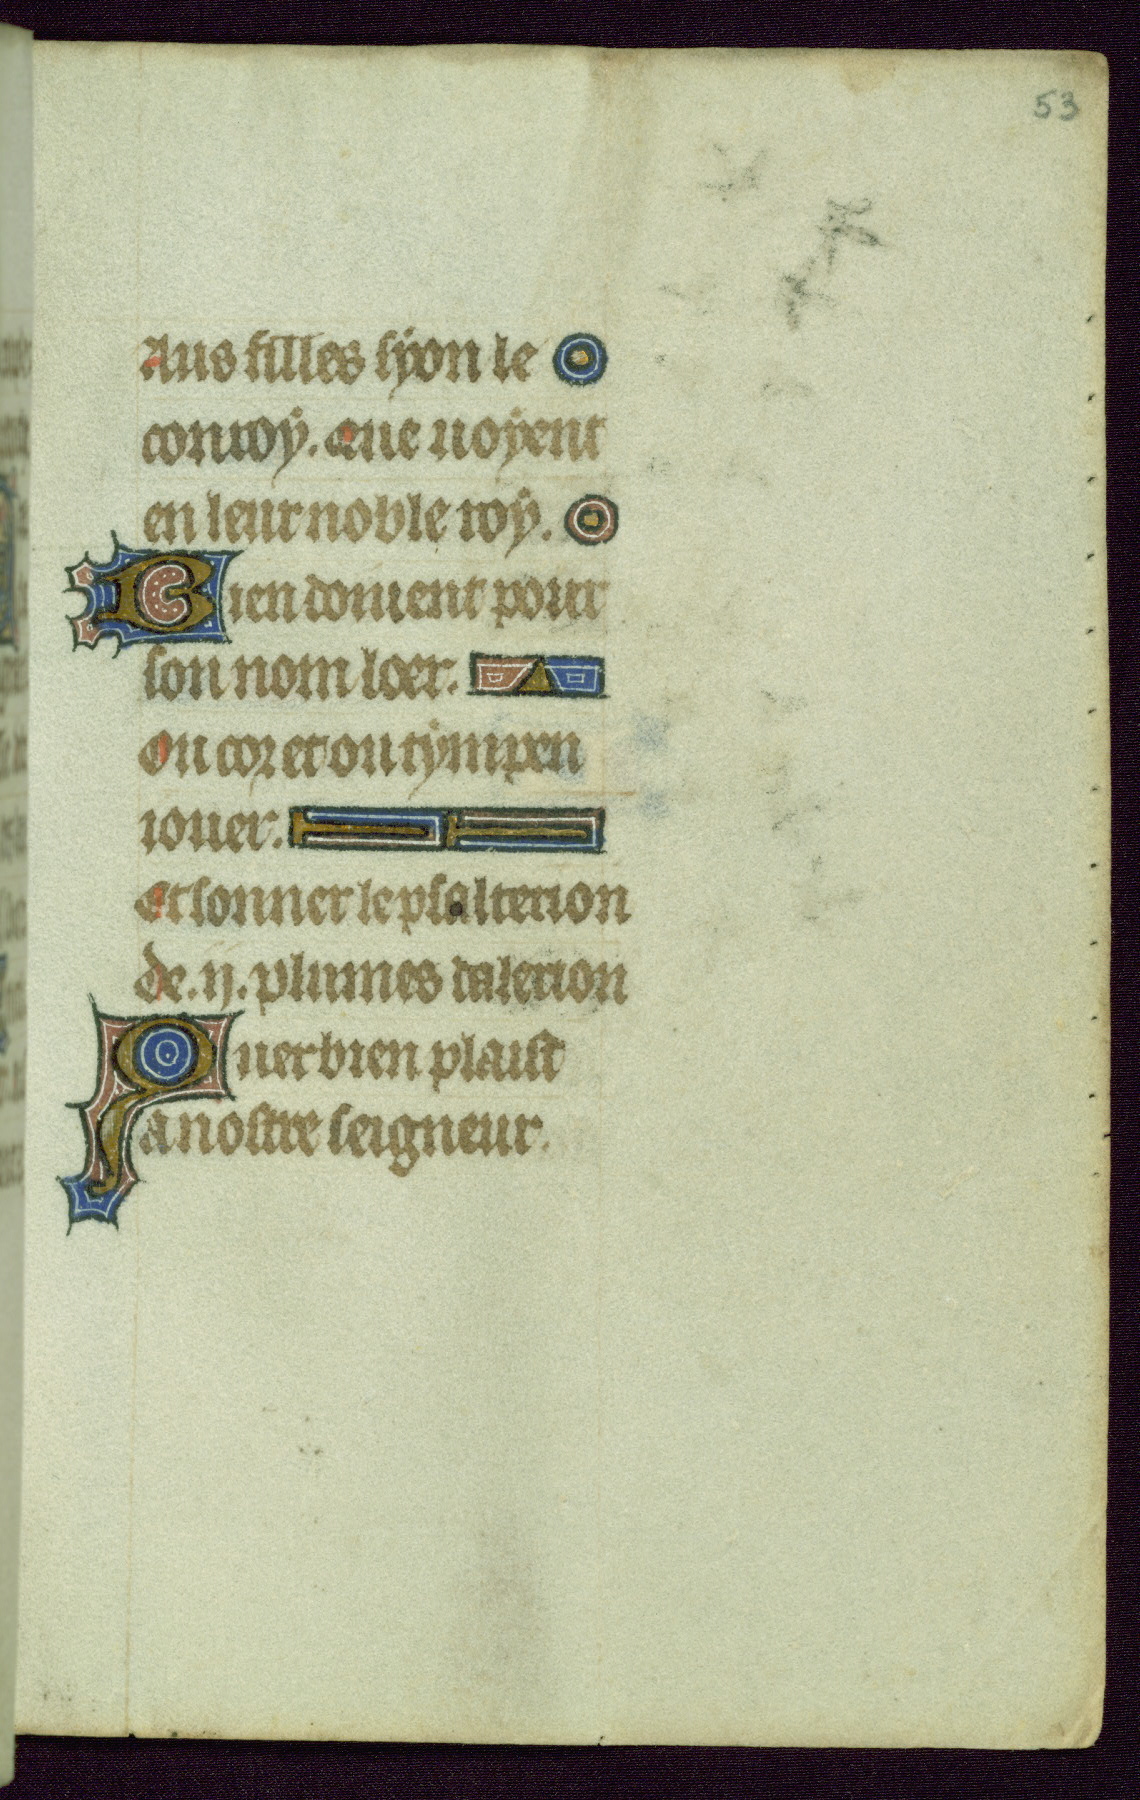 53
Aus filles syon le
conroy. Que uoyent
en leur noble roy.
Bien doiuent pour
son nom loer.
Ou cor et ou tympen
iouer.
Et sonner le psalterion
de .ij. plumes dalerion
Quer bien plaist
a nostre seigneur.